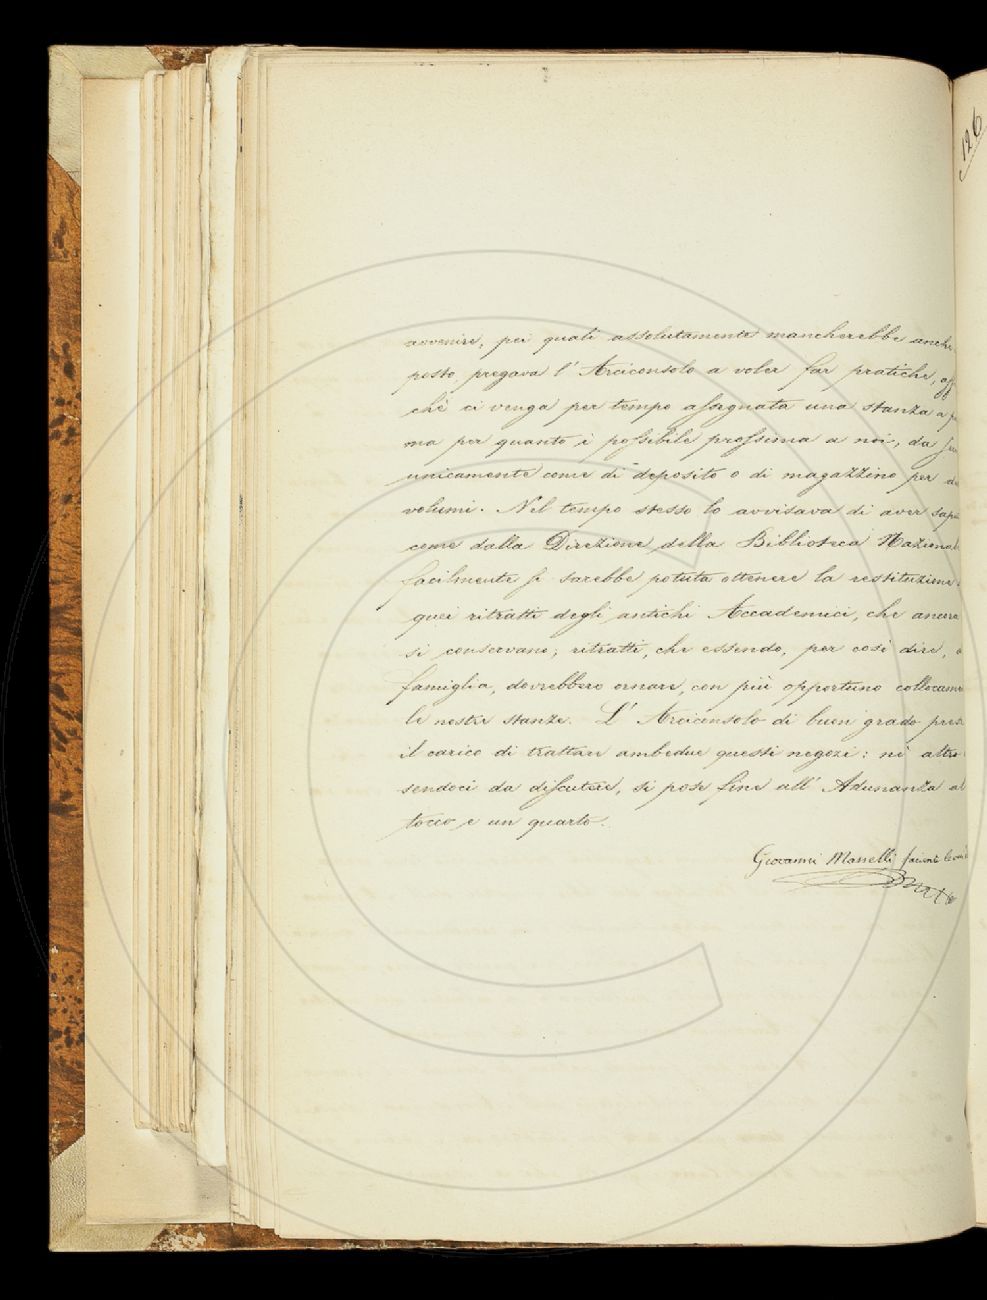 126
avvenire, pei quali assolutamente mancherebbe anche
posto, pregava l'Arciconsolo a voler far pratiche, aff
chè ci venga per tempo assegnata una stanza a
ma per quanto è possibile prossima a noi, da
unicamente come di deposito o di magazzino per
volumi. Nel tempo stesso lo avvisava di aver sap
come dalla Direzione della Biblioteca Naziona
facilmente si sarebbe potuta ottenere la restituzione
quei ritratti degli antichi Accademici, che ancora
si conservano; ritratti, che essendo, per così dire,
famiglia, dovrebbero ornare, con più opportuno collocam
le nostre stanze. L'Arciconsolo di buon grado pres
il carico di trattare ambedue questi negozi: nè altro
sendoci da discutere, si pose fine all'Adunanza al
tocco e un quarto.
Giovanni Masselli facente le veci